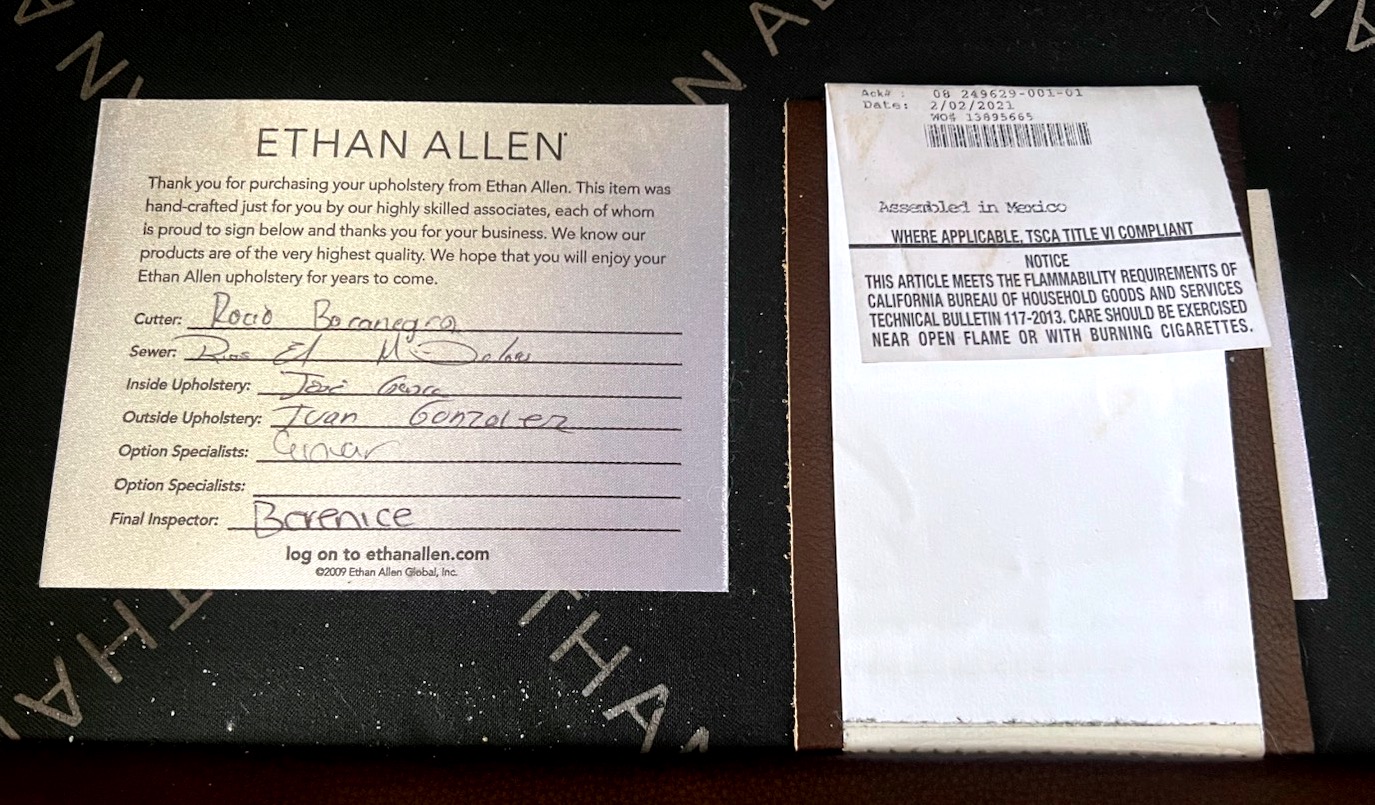 ETHAN ALLEN
Thank you for purchasing your upholstery from Ethan Allen. This item was
hand-crafted just for you by our highly skilled associates, each of whom
is proud to sign below and thanks you for your business. We know our
products are of the very highest quality. We hope that you will enjoy your
Ethan Allen upholstery for years to come.
Cutter: Rocio Bocanegra
Sewer:
Inside Upholstery: Jose
Outside Upholstery: Ivan Gonzalez
Option Specialists:
Option Specialists:
Final Inspector: Berenice
log on to ethanallen.com
©2009 Ethan Allen Global, Inc.
Ack# : 08 249629-001-01
Date: 2/02/2021
WO# 13895665
Assembled in Mexico
WHERE APPLICABLE, TSCA TITLE VI COMPLIANT
NOTICE
THIS ARTICLE MEETS THE FLAMMABILITY REQUIREMENTS OF
CALIFORNIA BUREAU OF HOUSEHOLD GOODS AND SERVICES
TECHNICAL BULLETIN 117-2013. CARE SHOULD BE EXERCISED
NEAR OPEN FLAME OR WITH BURNING CIGARETTES.